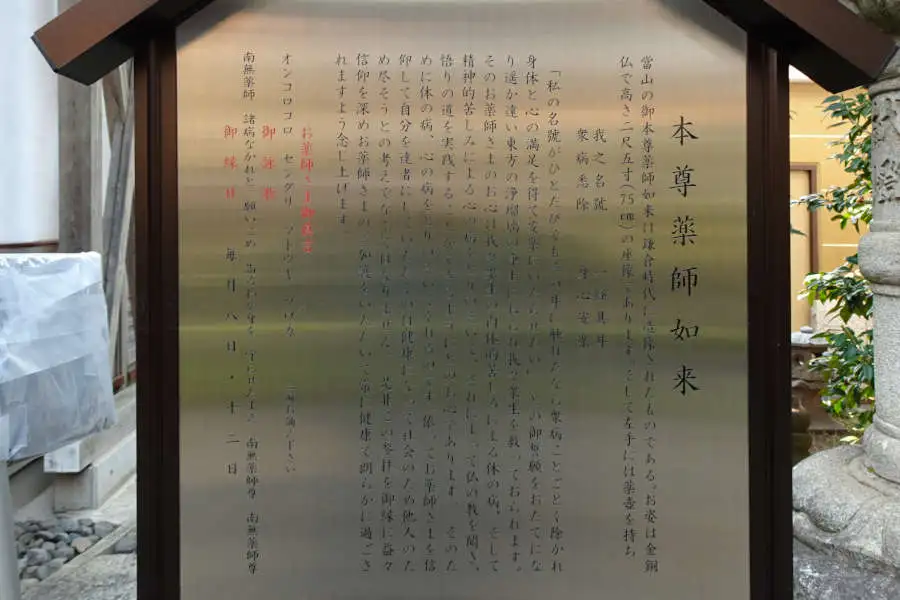 本尊薬師如来
當山の御本尊薬師如来は鎌倉時代に造像されたものである。お姿は金銅
仏で高さ二尺五寸(75㎝)の座像であります。そして左手には薬壺を持ち
我之名號 一經其耳
衆病悉除 身心安楽
「私の名號がひとたびでも 耳に触れたなら衆病ことごとく除かれ
身体と心の満足を得て安楽に 御誓願をおたてにな
り遥か遠い東方の浄瑠璃 浄土 我々衆生を救っておられます。
そのお薬師さまのお心は我々衆生の肉体的苦しみによる体の病、そして
精神的苦しみによる心の病 それによって仏の教を聞き、
悟りの道を実践する お心であります そのた
めに体の病、心の病を 依ってお薬師さまを信
仰して自分を達者にし、 健康になって社会のため他人のた
め尽そうとの考えでなくてはなりません 是非この参拝を御縁に益々
信仰を深めお薬師さまの御加護をいただいて常に健康で明らかに過ごさ
れますよう念じ上げます。
お薬師さま御真言
オンコロコロ センダリ マトウギ ソワカ お唱え下さい
御詠歌
南無薬師 諸病なかれと 願いこめ 南無薬師尊 南無薬師尊
御縁日 毎月八日・十二日